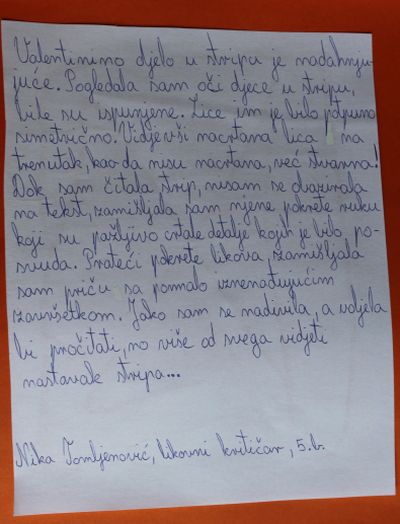 Valentinino djelo u stripu je nadahnju-
juće. Pogledala sam oči djece u stripu,
bile su ispunjene. Lice im je bilo potpuno
simetrično. Vidjevši nacrtana lica na
trenutak, kao da nisu nacrtana, već stvarna!
Dok sam čitala strip, nisam se obazirala
na tekst, zamišljala sam njene pokrete ruku
koji su pažljivo crtale detalje kojih je bilo po-
svuda. Prateći pokrete likova, zamišljala
sam priču sa pomalo iznenađujućim
završetkom. Jako sam se nadivila, a voljela
bi pročitati, no više od svega vidjeti
nastavak stripa...
Nika Tomljenović, likovni kritičar, 5.b.